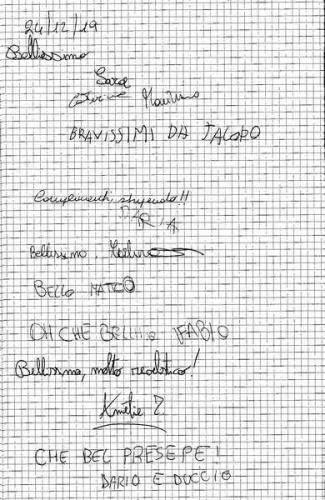 24/12/19
Bellissimo
Sara
Martino
BRAVISSIMI DA JACOPO
Complimenti, stupendo!!
DARIA
Bellissimo.
BELLO MATTEO
OH CHE BELLINO FABIO
Bellissimo, molto realistico!
Z.
CHE BEL PRESEPE!
DARIO E DUCCIO